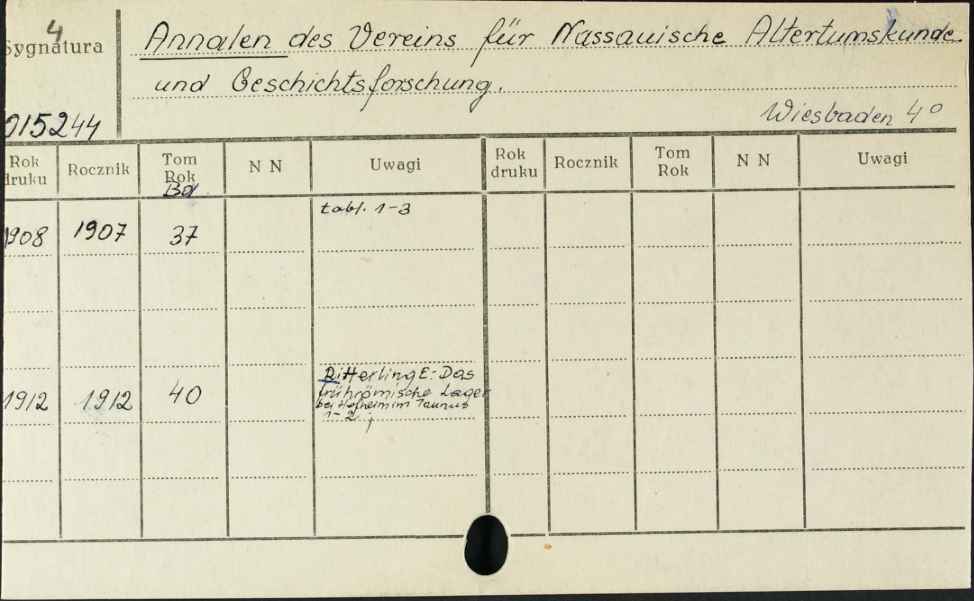 4
Sygnatura
Annalen des Vereins für Nassauische Altertumskunde
und Geschichtsforschung.
015244
Wiesbaden 4°
Rok druku Rocznik Tom Rok N N Uwagi Rok druku Rocznik Tom Rok N N Uwagi
Bd.
tabl. 1-3
1908 1907 37
Ritterling E: Das
frührömische Lager
1912 1912 40
bei Hofheim im Taunus
1-2